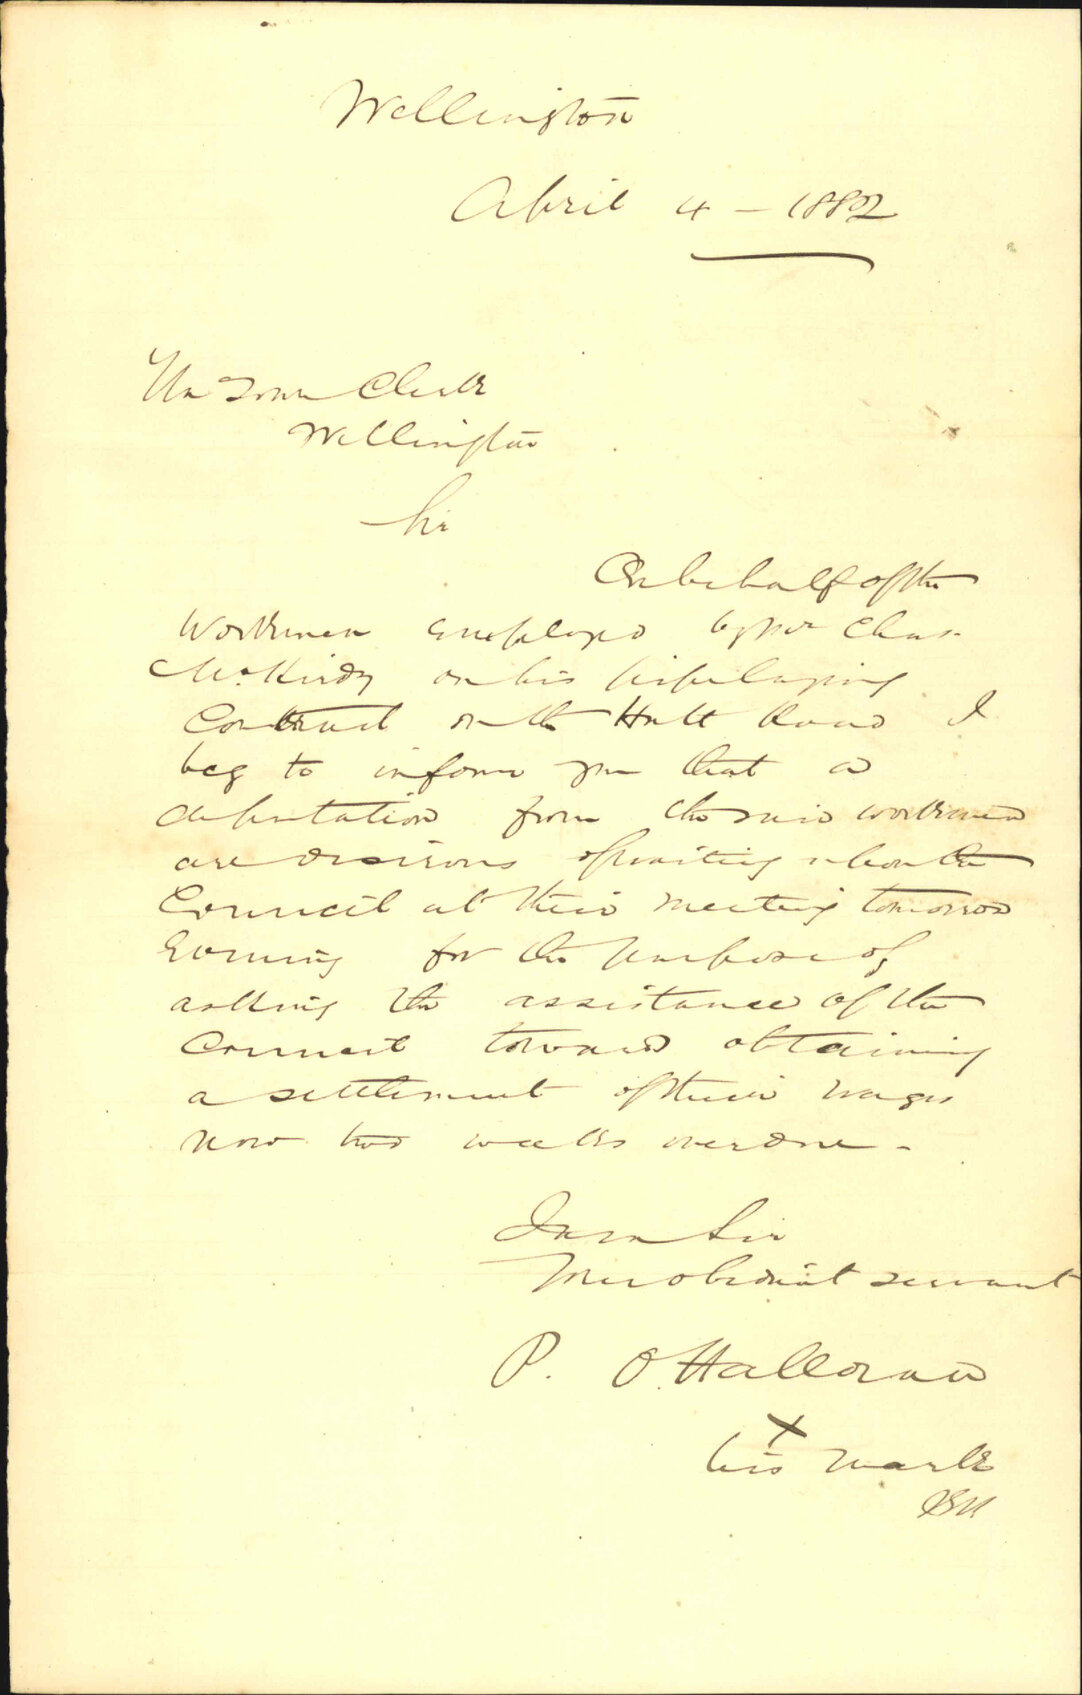 Wellington
April 4 - 1882
The Town Clerk
Wellington
Sir
On behalf of the
Workmen employed by Mr Chas.
McKirdy on his pipe laying
Contract on the Hutt Road I
beg to inform you that a
deputation from the said workmen
are desirous of waiting upon the
Council at their meeting tomorrow
evening for the purpose of
asking the assistance of the
Council toward obtaining
a settlement of their wages
now two weeks overdue -
I am Sir
Your obedient servant
P. O'Halloran
X
his mark